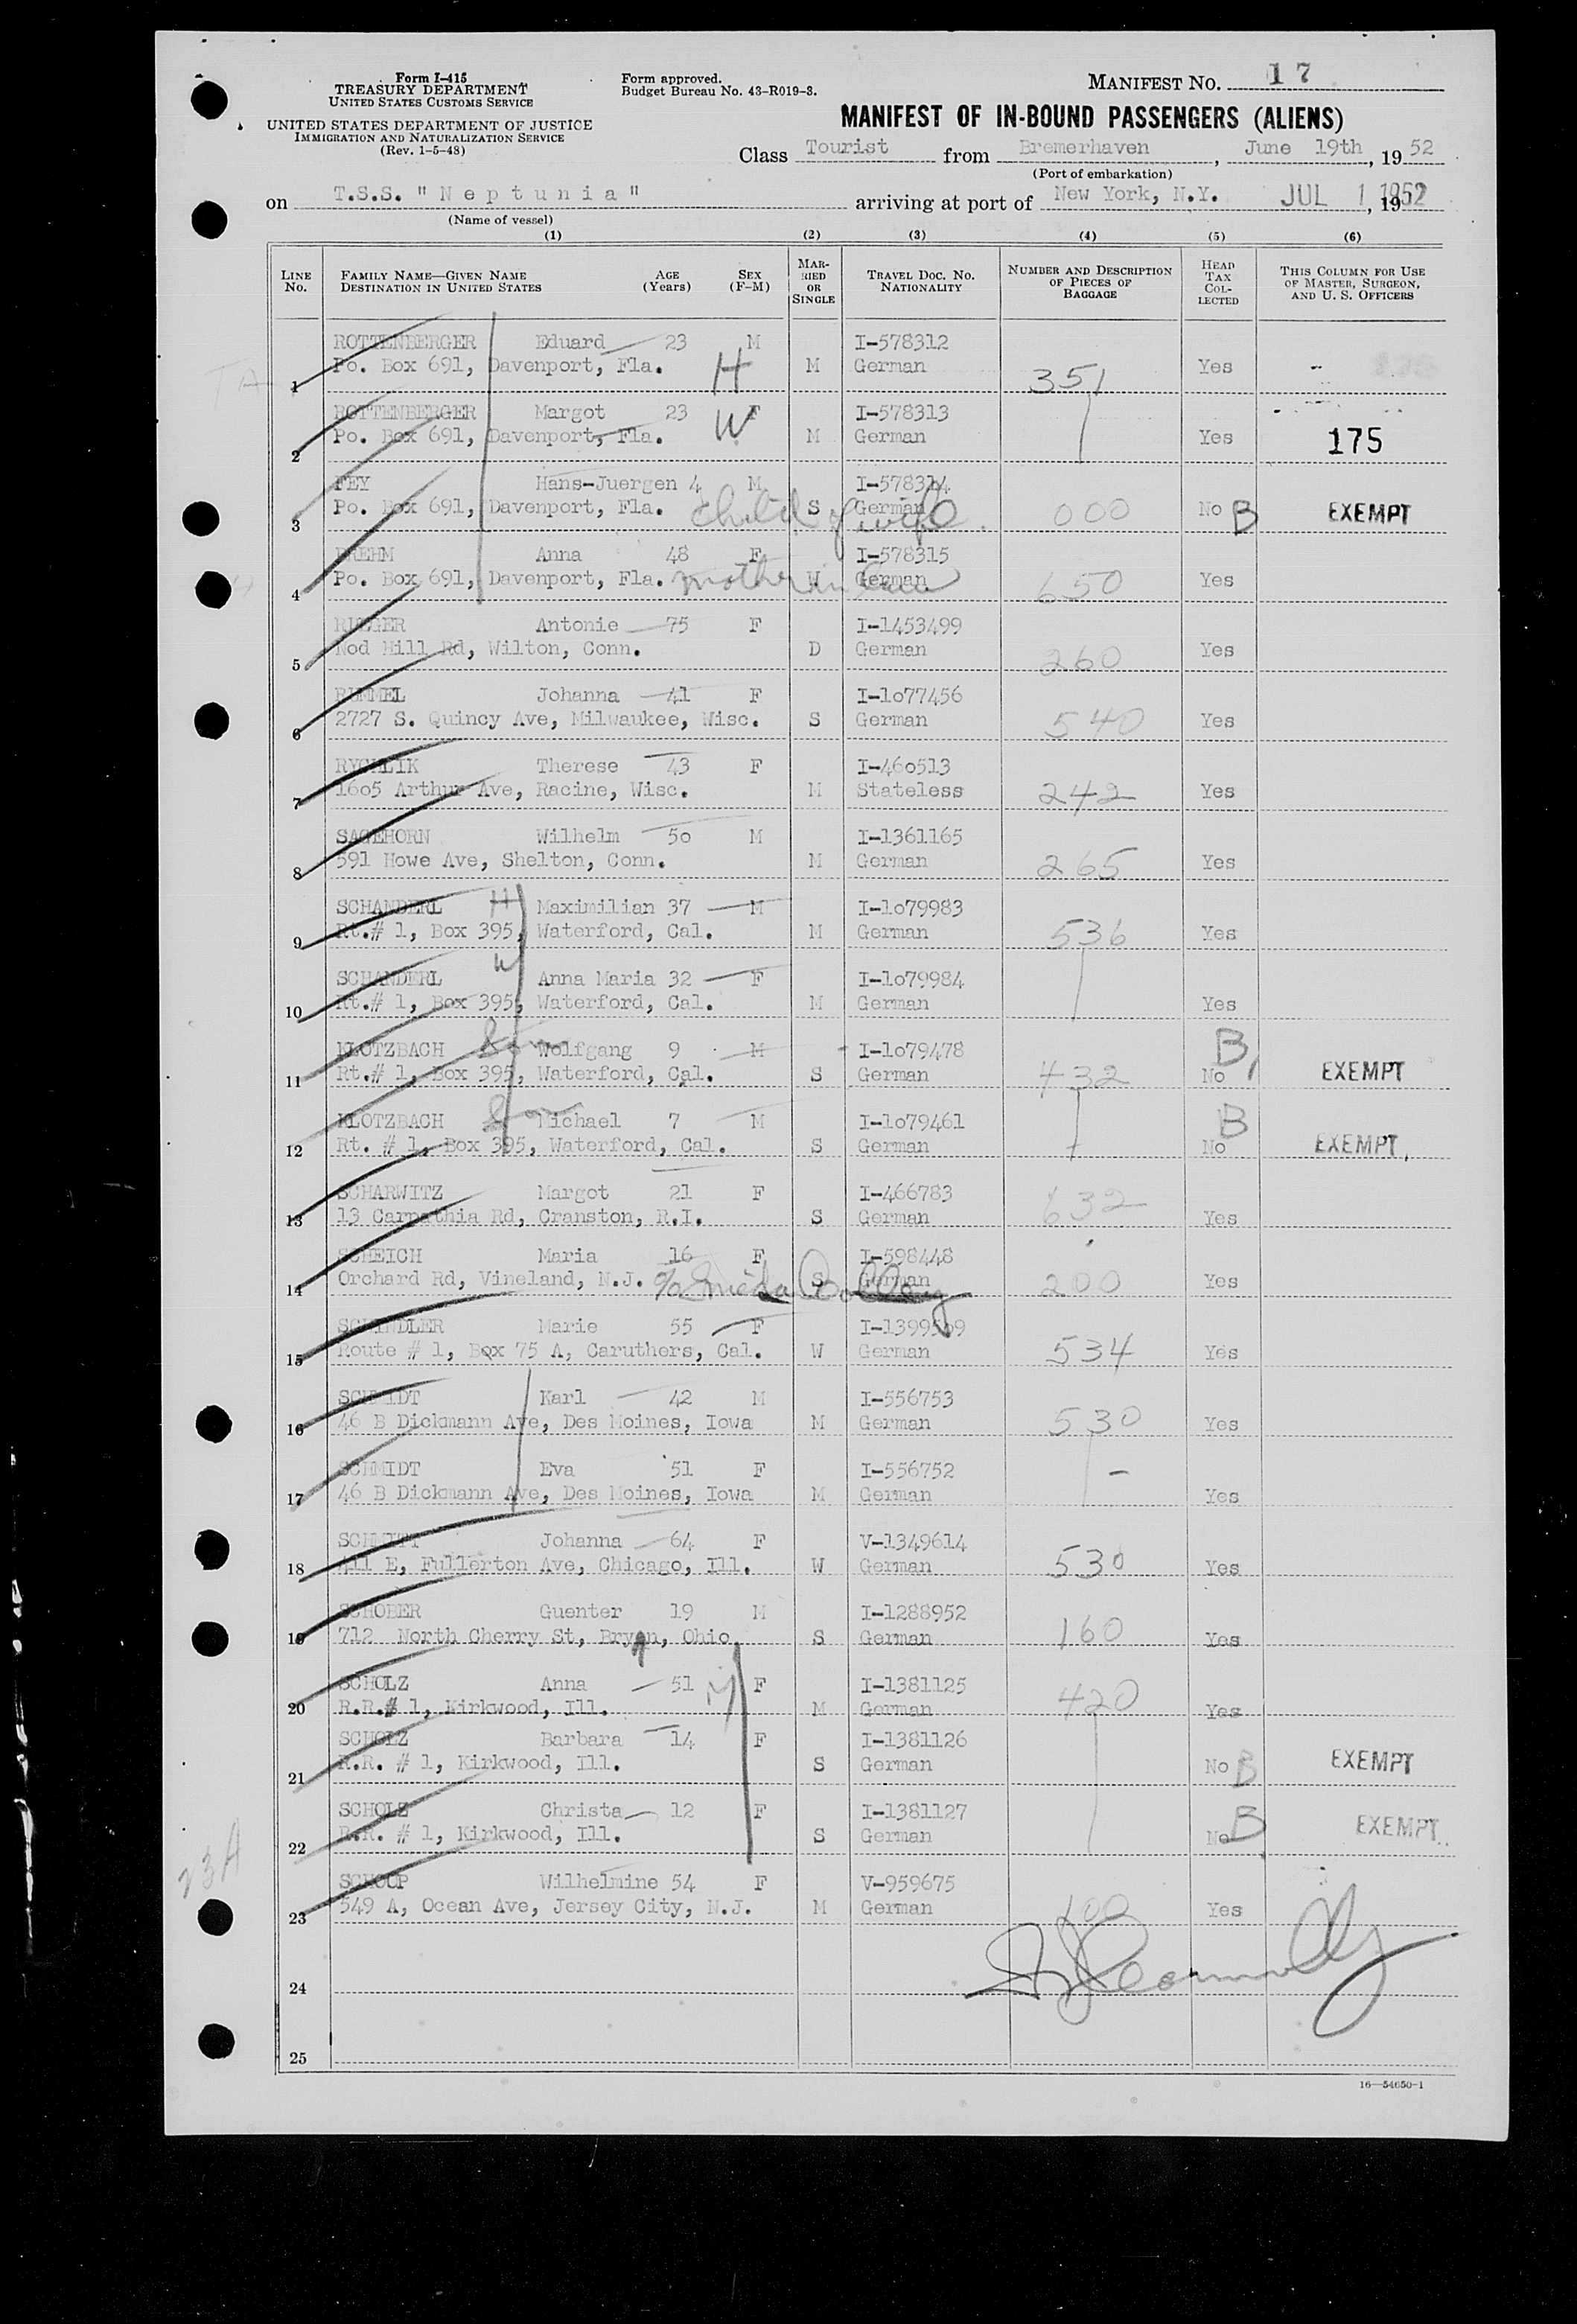 Form I-415
TREASURY DEPARTMENT
UNITED STATES CUSTOMS SERVICE
UNITED STATES DEPARTMENT OF JUSTICE
IMMIGRATION AND NATURALIZATION SERVICE
(Rev. 1-5-48)
Form approved.
Budget Bureau No. 43-R019-3.
MANIFEST NO. 17
MANIFEST OF IN-BOUND PASSENGERS (ALIENS)
Class Tourist from Bremerhaven, June 19th, 19 52
(Port of embarkation)
on T.S.S. "Neptunia" arriving at port of New York, N.Y. JUL 1 1952, 19
(Name of vessel)
(1) (2) (3) (4) (5) (6)
LINE No. FAMILY NAME—GIVEN NAME DESTINATION IN UNITED STATES AGE (Years) SEX (F-M) MARRIED OR SINGLE TRAVEL DOC. NO. NATIONALITY NUMBER AND DESCRIPTION OF PIECES OF BAGGAGE HEAD TAX COLLECTED THIS COLUMN FOR USE OF MASTER, SURGEON, AND U. S. OFFICERS
ROTTENBERGER Eduard 23 M I-578312
1 Po. Box 691, Davenport, Fla. H M German 351 Yes
ROTTENBERGER Margot 23 F I-578313
2 Po. Box 691, Davenport, Fla. W M German Yes 175
FEY Hans-Juergen 4 M I-578314
3 Po. Box 691, Davenport, Fla. child of wife S German 000 No B EXEMPT
BREHM Anna 48 F I-578315
4 Po. Box 691, Davenport, Fla. mother in law W German 650 Yes
RIEGER Antonie 75 F I-1453499
5 Nod Hill Rd, Wilton, Conn. D German 260 Yes
RUMMEL Johanna 41 F I-1o77456
6 2727 S. Quincy Ave, Milwaukee, Wisc. S German 540 Yes
RYCHLIK Therese 43 F I-46o513
7 16o5 Arthur Ave, Racine, Wisc. M Stateless 242 Yes
SAGEHORN Wilhelm 5o M I-1361165
8 591 Howe Ave, Shelton, Conn. M German 265 Yes
SCHANDERL H Maximilian 37 M I-1o79983
9 Rt.# 1, Box 395, Waterford, Cal. M German 536 Yes
SCHANDERL W Anna Maria 32 F I-1o79984
10 Rt.# 1, Box 395, Waterford, Cal. M German Yes
KLOTZBACH Son Wolfgang 9 M I-1o79478 B
11 Rt.# 1, Box 395, Waterford, Cal. S German 432 No EXEMPT
KLOTZBACH Son Michael 7 M I-1o79461 B
12 Rt. # 1, Box 395, Waterford, Cal. S German No EXEMPT
SCHARWITZ Margot 21 F I-466783
13 13 Carpathia Rd, Cranston, R.I. S German 632 Yes
SCHEICH Maria 16 F I-598448
14 Orchard Rd, Vineland, N.J. c/o S German 200 Yes
SCHINDLER Marie 55 F
15 Route # 1, Box 75 A, Caruthers, Cal. W German 534 Yes
SCHMIDT Karl 42 M I-556753
16 46 B Dickmann Ave, Des Moines, Iowa M German 530 Yes
SCHMIDT Eva 51 F I-556752
17 46 B Dickmann Ave, Des Moines, Iowa M German Yes
SCHMITT Johanna 64 F V-1349614
18 411 E, Fullerton Ave, Chicago, Ill. W German 530 Yes
SCHOBER Guenter 19 M I-1288952
19 712 North Cherry St, Bryan, Ohio S German 160 Yes
SCHOLZ Anna 51 M F I-1381125
20 R.R.# 1, Kirkwood, Ill. M German 420 Yes
SCHOLZ Barbara 14 F I-1381126
21 R.R. # 1, Kirkwood, Ill. S German No B EXEMPT
SCHOLZ Christa 12 F I-1381127
22 R.R. # 1, Kirkwood, Ill. S German No B EXEMPT
23A
SCHOUP Wilhelmine 54 F V-959675
23 549 A, Ocean Ave, Jersey City, N.J. M German 100 Yes
24
25
16—54650-1